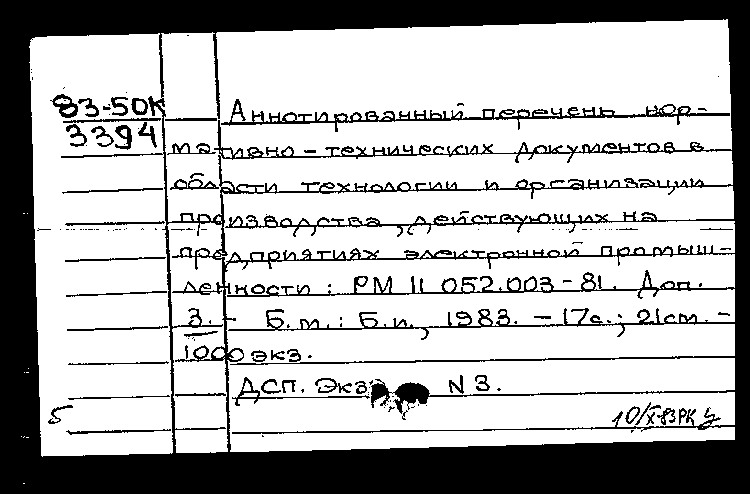 83-50К
3394
Аннотированный перечень нор-
мативно-технических документов в
области технологии и организации
производства, действующих на
предприятиях электронной промыш-
ленности: РМ 11 052.003-81. Доп.
3. - Б.м.: Б.и., 1983. - 17с.; 21см. -
1000 экз.
ДСП. Экз. N 3.
5
10/X-83 РК